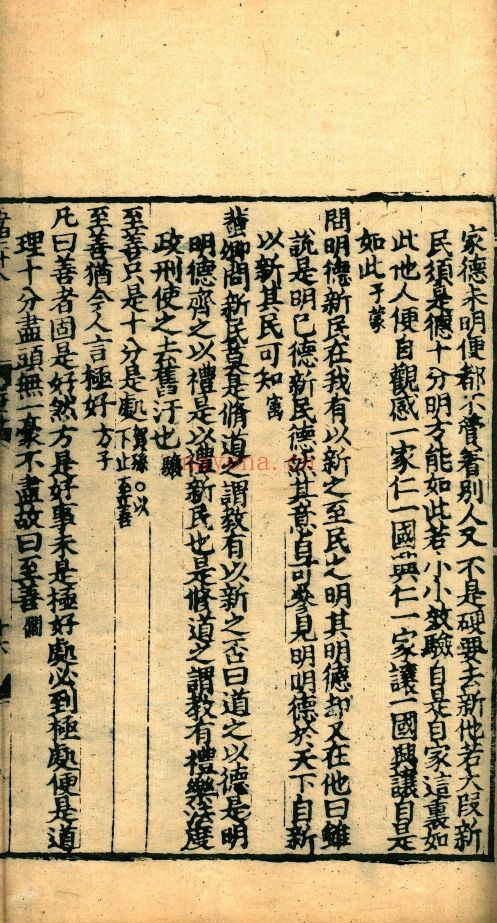 家德未明便都不管著別人又不是硬要去新他若大段新
民須是德十分明方能如此若小小效驗自是自家這裏如
此他人便自觀感一家仁一國興仁一家讓一國興讓自是
如此子蒙
問明德新民在我有以新之至民之明其明德却又在他曰雖
說是明已德新民德然其意自可參見明明德於天下自新
以新其民可知㝢
蜚卿問新民莫是脩道之謂教有以新之否曰道之以德是明
明德齊之以禮是以禮新民也是脩道之謂教有禮樂法度
政刑使之去舊汙也驤
至善只是十分是處賀孫○以下止至善
至善猶今人言極好方子
凡曰善者固是好然方是好事未是極好處必到極處便是道
理十分盡頭無一毫不盡故曰至善僩
十六
nayona.cn